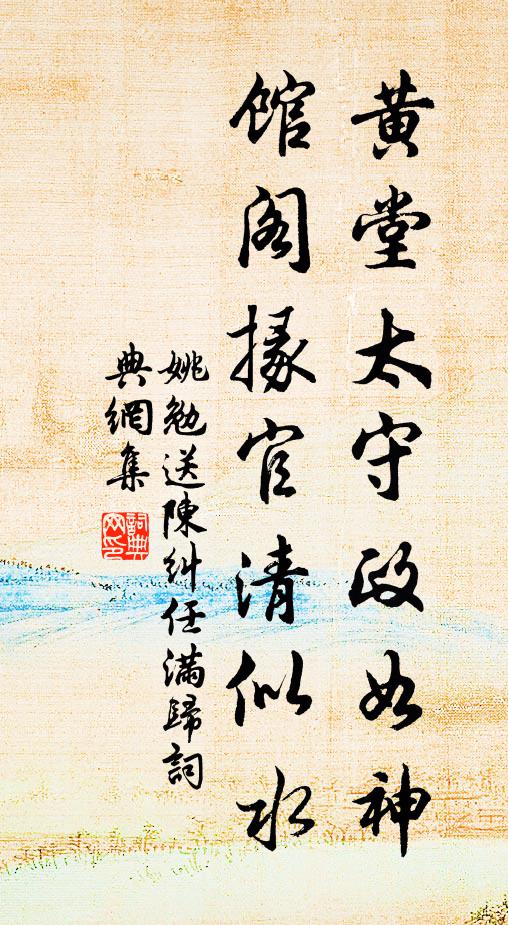 黄堂太守政如神
馆阁掾官清似水
姚勉送陳糾任满歸詞
典網集
詞典
网印